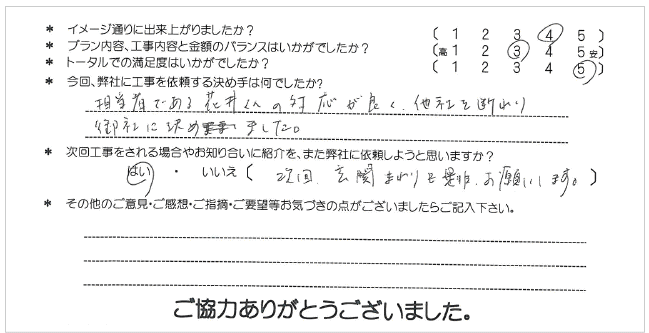 * イメージ通りに出来上がりましたか? [ 1 2 3 4 5 ]
* プラン内容、工事内容と金額のバランスはいかがでしたか? [高 1 2 3 4 5 安]
* トータルでの満足度はいかがでしたか? [ 1 2 3 4 5 ]
* 今回、弊社に工事を依頼する決め手は何でしたか?
担当者である花井くんの対応が良く、他社を断わり
御社に決めました。
* 次回工事をされる場合やお知り合いに紹介を、また弊社に依頼しようと思いますか?
はい ・ いいえ [ 次回、玄関まわりを是非、お願いします。 ]
* その他のご意見・ご感想・ご指摘・ご要望等お気づきの点がございましたらご記入下さい。
ご協力ありがとうございました。